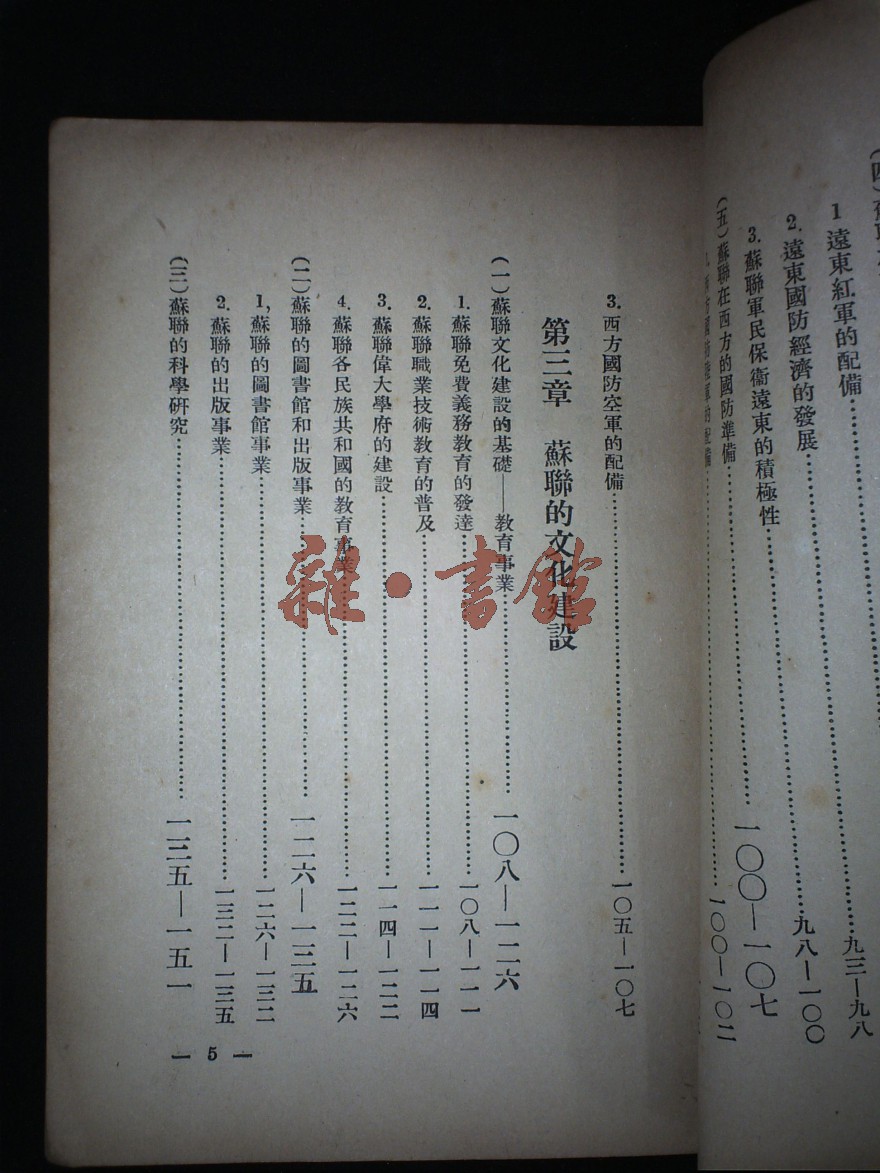 (四)
1 遠東紅軍的配備……
2. 遠東國防經濟的發展……九三—九八
3. 蘇聯軍民保衞遠東的積極性……九八—一〇〇
(五)蘇聯在西方的國防準備……一〇〇—一〇七
國防陸軍的配備……一〇〇—一〇二
3. 西方國防空軍的配備……一〇五—一〇七
第三章 蘇聯的文化建設
(一)蘇聯文化建設的基礎——教育事業……一〇八—一二六
1. 蘇聯免費義務教育的發達……一〇八—一一一
2. 蘇聯職業技術教育的普及……一一一—一一四
3. 蘇聯偉大學府的建設……一一四—一二二
4. 蘇聯各民族共和國的教育事業……一二二—一二六
(二)蘇聯的圖書館和出版事業……一二六—一三五
1, 蘇聯的圖書館事業……一二六—一三二
2. 蘇聯的出版事業……一三二—一三五
(三)蘇聯的科學研究……一三五—一五一
— 5 —
雜·書館